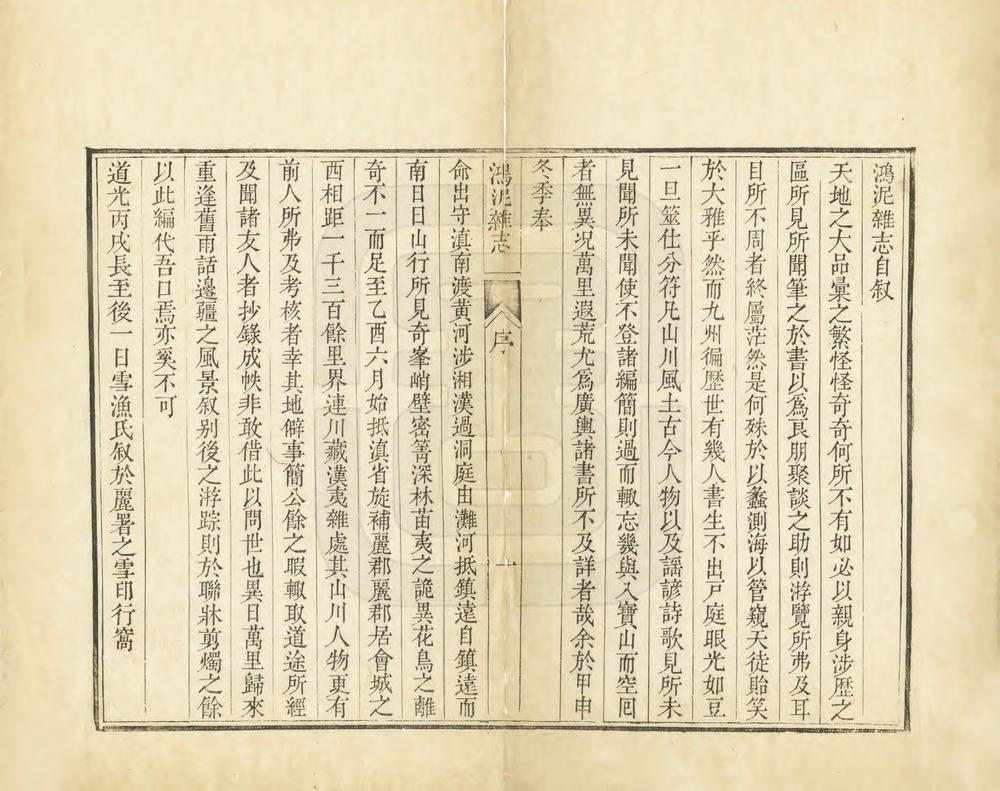 鴻泥雜志自叙
天地之大品彚之繁怪怪奇奇何所不有如必以親身涉歷之
區所見所聞筆之於書以爲良朋聚談之助則游覽所弗及耳
目所不周者終屬茫然是何殊於以蠡測海以管窺天徒貽笑
於大雅乎然而九州徧歷世有幾人書生不出戸庭眼光如豆
一旦筮仕分符凡山川風土古今人物以及謡諺詩歌見所未
見聞所未聞使不登諸編簡則過而輙忘幾與入寶山而空囘
者無異况萬里遐荒尤爲廣輿諸書所不及詳者哉余於甲申
冬季奉
鴻泥雜志
序
一
命出守滇南渡黃河涉湘漢過洞庭由灘河抵鎮遠自鎮遠而
南日日山行所見奇峯峭壁密箐深林苗夷之詭異花鳥之離
奇不一而足至乙酉六月始抵滇省旋補麗郡麗郡居會城之
西相距一千三百餘里界連川藏漢夷雜處其山川人物更有
前人所弗及考核者幸其地僻事簡公餘之暇輙取道途所經
及聞諸友人者抄錄成帙非敢借此以問世也異日萬里歸來
重逢舊雨話邊疆之風景叙别後之游踪則於聯牀剪燭之餘
以此編代吾口焉亦奚不可
道光丙戌長至後一日雪漁氏叙於麗署之雪印行窩